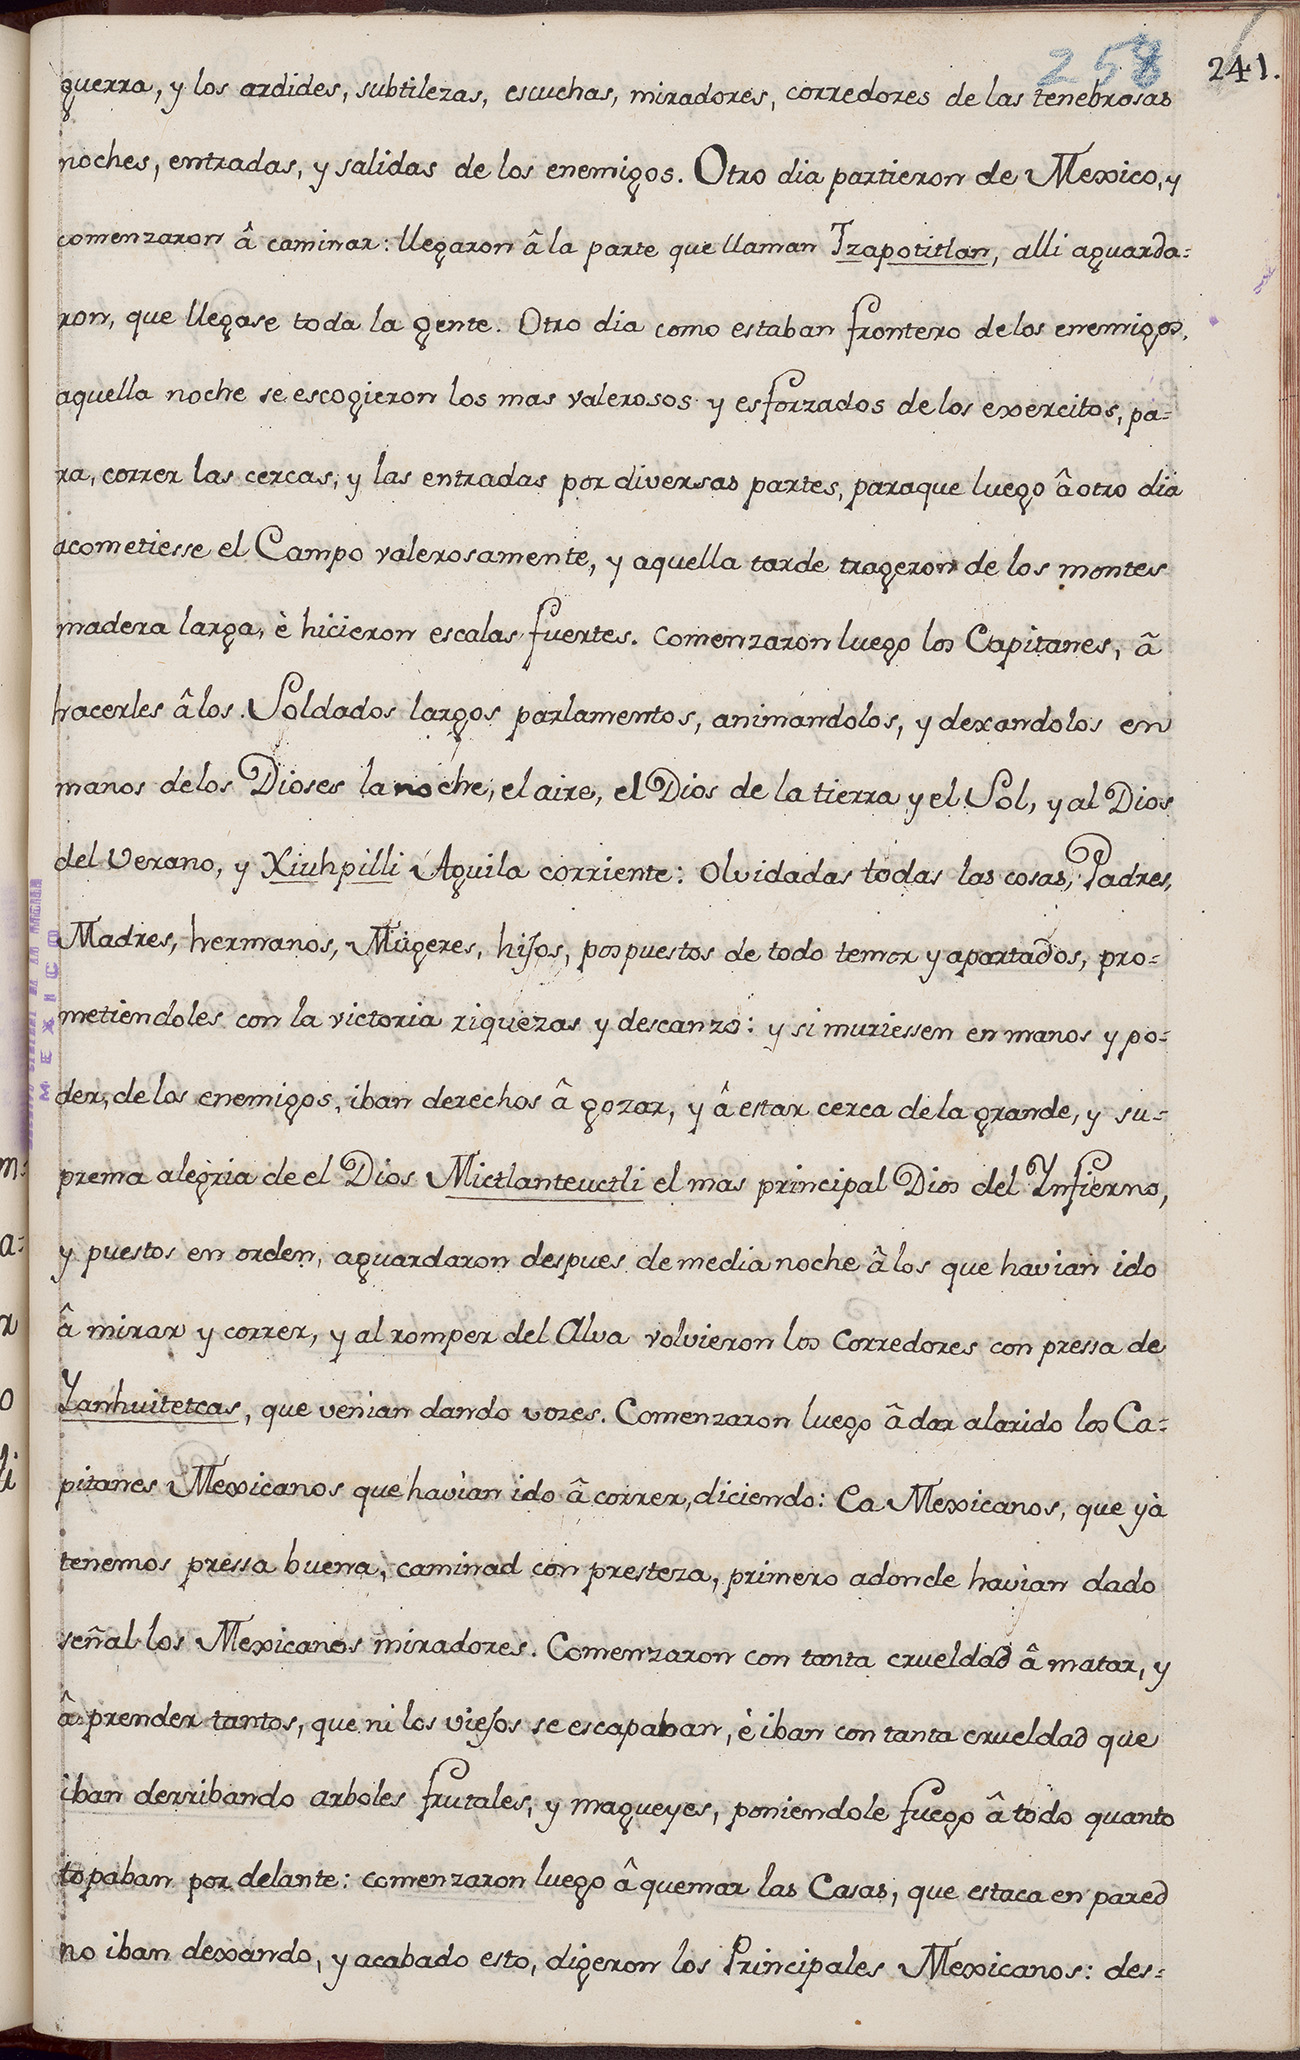 258 241.
guerra, y los ardides, subtilezas, escuchas, miradores, corredores de las tenebrosas
noches, entradas, y salidas de los enemigos. Otro dia partieron de Mexico, y
comenzaron â caminar: llegaron â la parte que llaman Tzapotitlan, alli aguarda=
ron, que llegase toda la gente. Otro dia como estaban frontero de los enemigos,
aquella noche se escogieron los mas valerosos y esforzados de los exercitos, pa=
ra, correr las cercas, y las entradas por diversas partes, paraque luego â otro dia
acometiesse el Campo valerosamente, y aquella tarde trageron de los montes
madera larga, è hicieron escalas fuertes. Comenzaron luego los Capitanes, â
hacerles â los Soldados largos parlamentos, animandolos, y dexandolos en
manos de los Dioses la noche, el aire, el Dios de la tierra y el Sol, y al Dios
del Verano, y Xiuhpilli Aguila corriente: Olvidadas todas las cosas, Padres,
Madres, hermanos, Mugeres, hijos, pospuestos de todo temor y apartados, pro=
metiendoles con la victoria riquezas y descanzo: y si muriessen en manos y po=
der, de los enemigos, iban derechos â gozar, y â estar cerca de la grande, y su=
prema alegria de el Dios Mictlanteuctli el mas principal Dios del Ynfierno,
y puestos en orden, aguardaron despues de media noche â los que havian ido
â mirar y correr, y al romper del Alva volvieron los Corredores con pressa de
Yanhuitetcas, que venian dando vozes. Comenzaron luego â dar alarido los Ca=
pitanes Mexicanos que havian ido â correr, diciendo: Ea Mexicanos, que yà
tenemos pressa buena, caminad con presteza, primero adonde havian dado
señal los Mexicanos miradores. Comenzaron con tanta crueldad â matar, y
â prender tantos, que ni los viejos se escapaban, è iban con tanta crueldad que
iban derribando arboles frutales, y magueyes, poniendole fuego â todo quanto
topaban por delante: comenzaron luego â quemar las Casas, que estaca en pared
no iban dexando, y acabado esto, digeron los Principales Mexicanos: des=
MEXICO